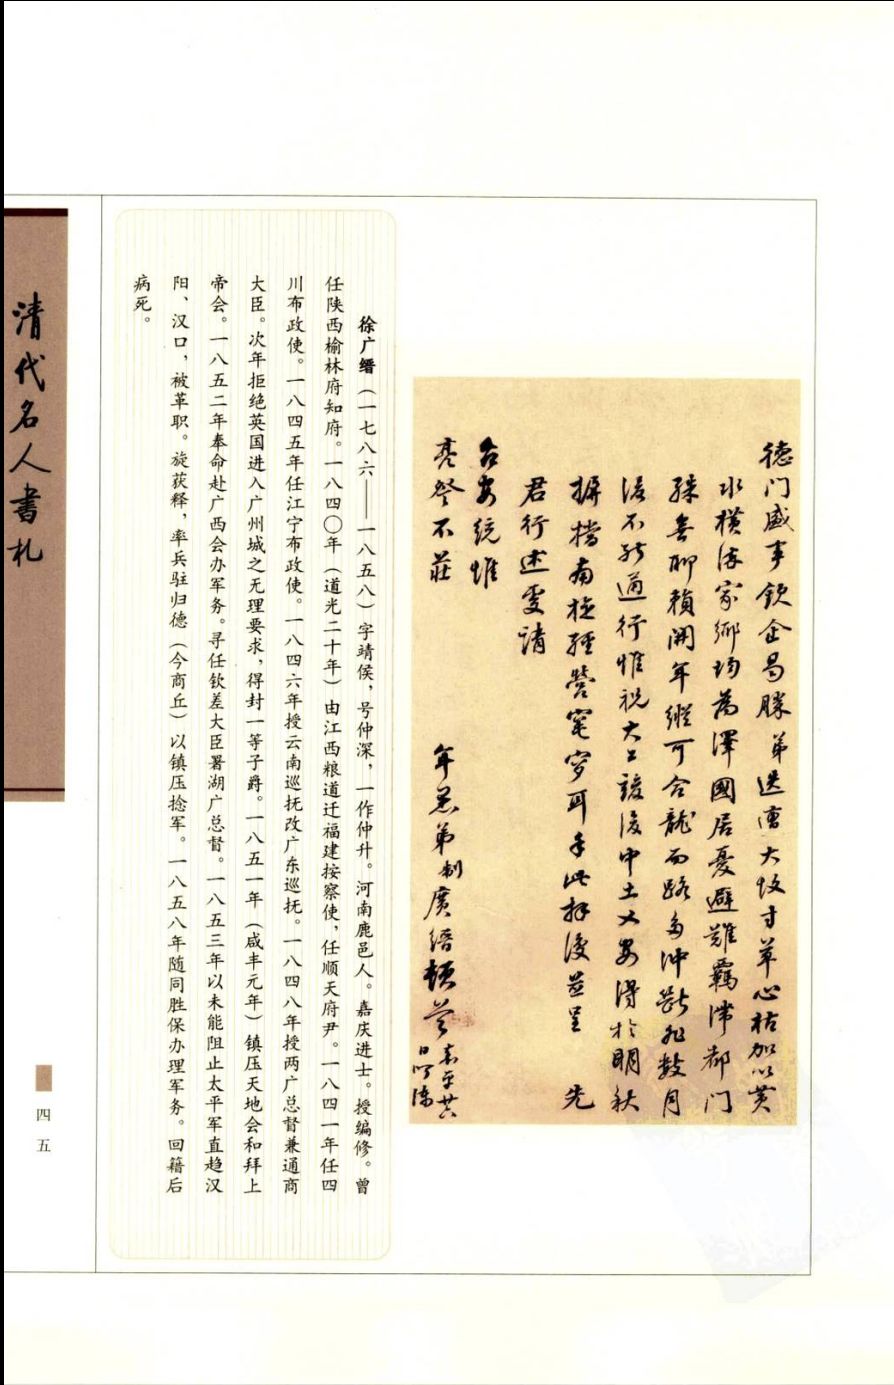 德门盛事钦企曷胜弟迭遭大故寸草心枯加以黄
水横流家乡均为泽国居忧避难羁滞都门
殊无聊赖开年纵可合龙而路多冲断非数月
后不能通行惟祝大工竣后中土乂安得于明秋
摒挡南旋经营窀穸耳手此抻复并呈 先
君行述虔请
台安统惟
亮詧不庄
年愚弟制广缙顿首
徐广缙(一七八六——一八五八)字靖侯,号仲深,一作仲升。河南鹿邑人。嘉庆进士。授编修。曾
任陕西榆林府知府。一八四〇年(道光二十年)由江西粮道迁福建按察使,任顺天府尹。一八四一年任四
川布政使。一八四五年任江宁布政使。一八四六年授云南巡抚改广东巡抚。一八四八年授两广总督兼通商
大臣。次年拒绝英国进入广州城之无理要求,得封一等子爵。一八五一年(咸丰元年)镇压天地会和拜上
帝会。一八五二年奉命赴广西会办军务。寻任钦差大臣署湖广总督。一八五三年以未能阻止太平军直趋汉
阳、汉口,被革职。旋获释,率兵驻归德(今商丘)以镇压捻军。一八五八年随同胜保办理军务。回籍后
病死。
清代名人書札
四五